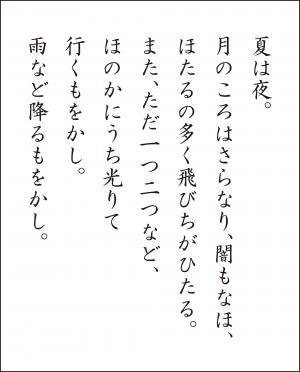 夏は夜。
月のころはさらなり、闇もなほ、
ほたるの多く飛びちがひたる。
また、ただ一つ二つなど、
ほのかにうち光りて
行くもをかし。
雨など降るもをかし。